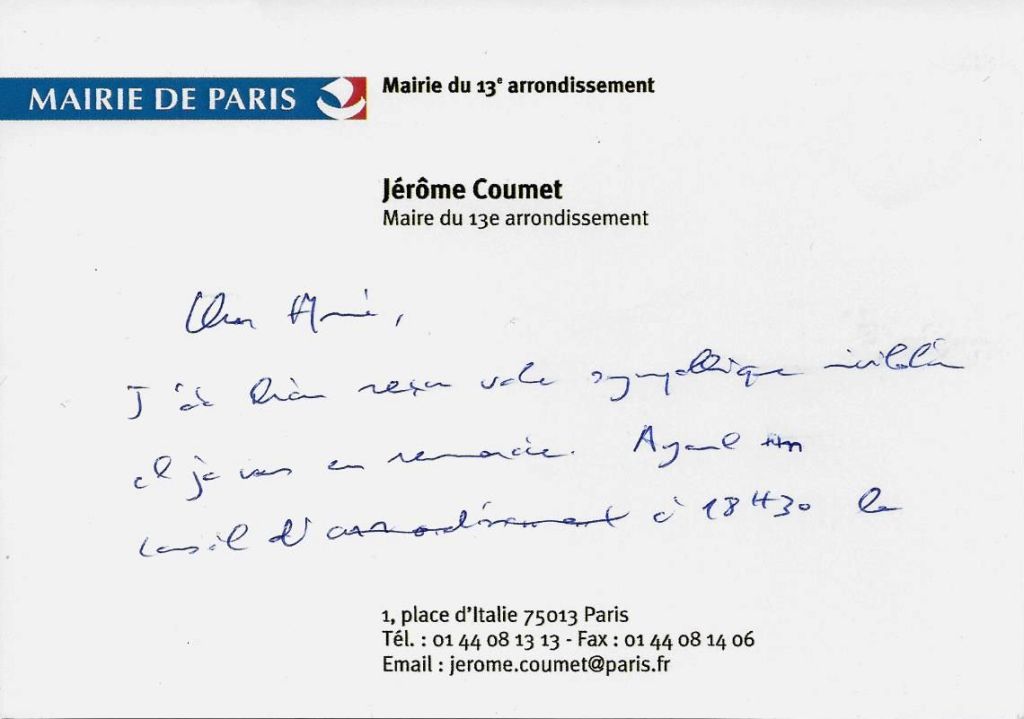 MAIRIE DE PARIS
Mairie du 13e arrondissement
Jérôme Coumet
Maire du 13e arrondissement
Cher
J'ai bien reçu votre sympathique invitation
et je vous en remercie. Ayant un
conseil d'arrondissement à 18H30 le
1, place d'Italie 75013 Paris
Tél. : 01 44 08 13 13 - Fax : 01 44 08 14 06
Email : jerome.coumet@paris.fr